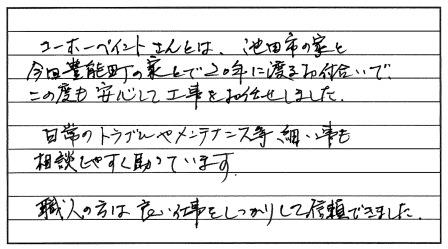 ユーホーペイントさんとは、池田市の家と
今回豊能町の家とで20年に渡るお付合いで、
この度も安心して工事をお任せしました。
日常のトラブルやメンテナンス等、細い事も
相談しやすく助ています。
職人の方は良い仕事をしっかりして信頼できました。